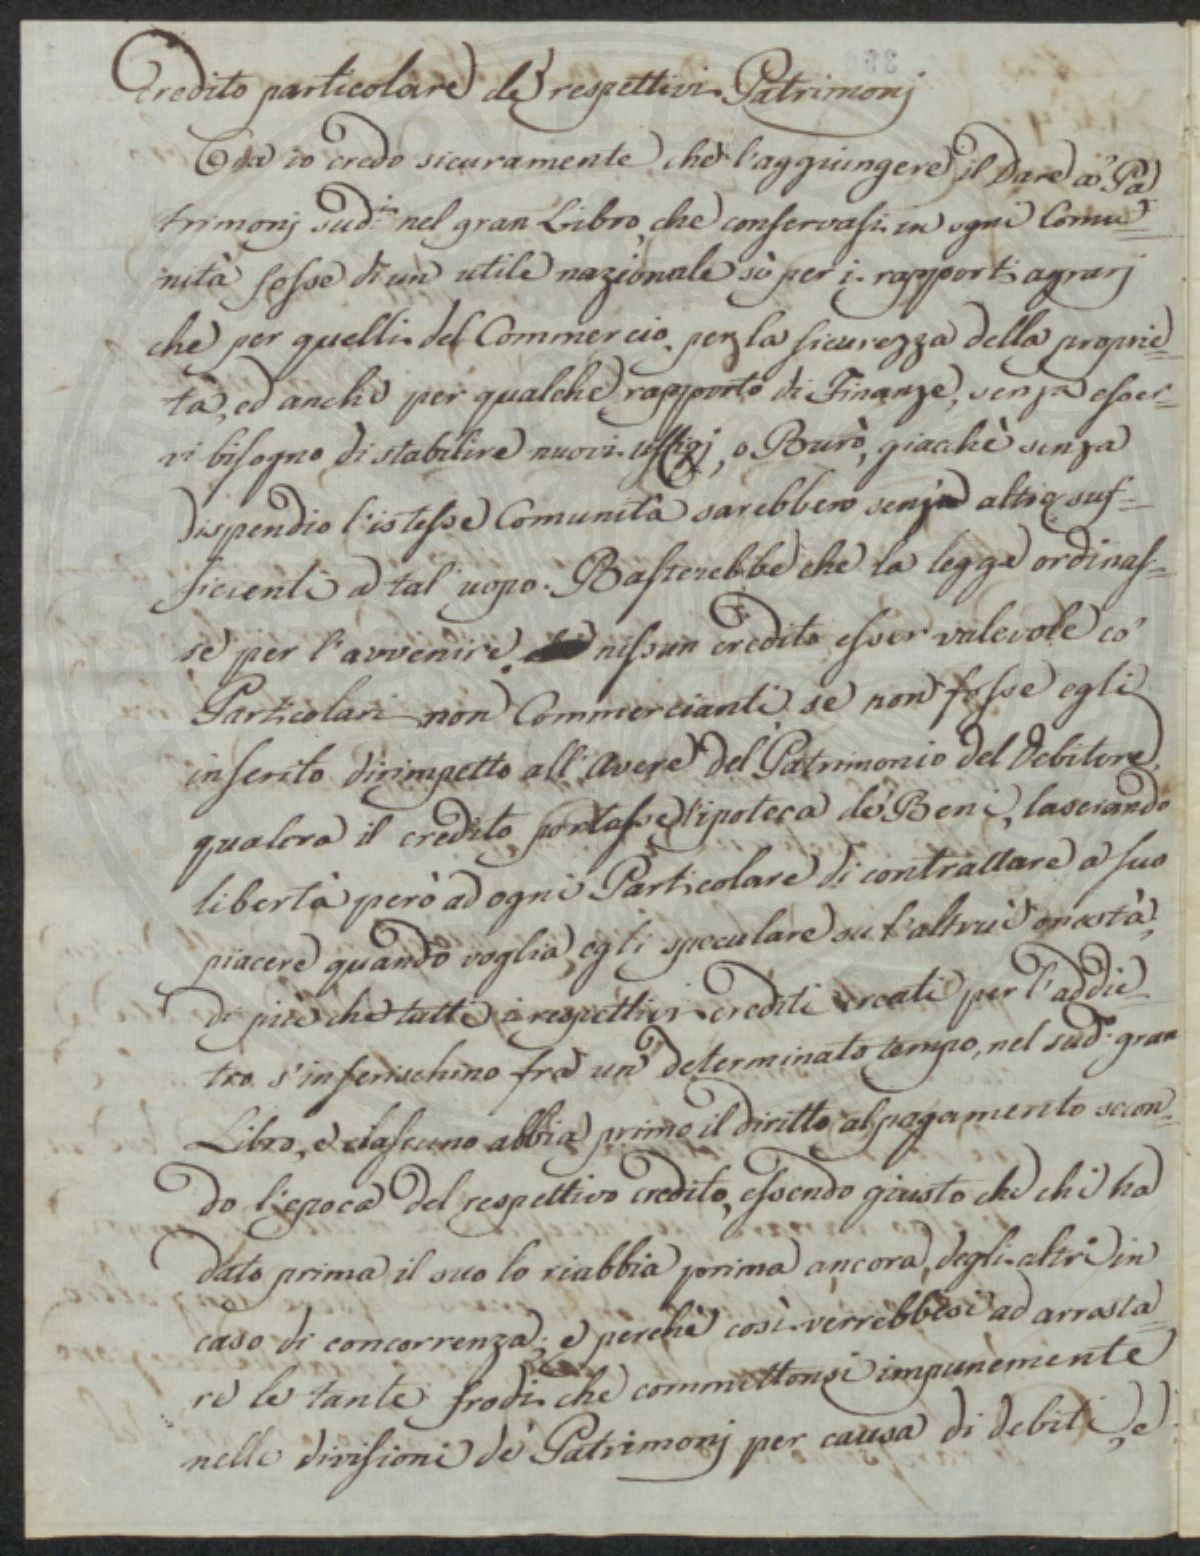 Credito particolare de' respettivi Patrimonj
Ora io credo sicuramente che l'aggiungere il Dare a' Pa
trimonj sud.ti nel gran Libro, che conservasi in ogni Comu=
nità fosse di un utile nazionale sì per i rapporti agrarj
che per quelli del Commercio, per la sicurezza della proprie=
tà, ed anche per qualche rapporto di Finanze, senza esser=
vi bisogno di stabilire nuovi uffizj, o Burò, giacchè senza
dispendio l'istesse Comunità sarebbero senz'altro suf=
ficienti a tal'uopo. Basterebbe che la legge ordinas=
se per l'avvenire nissun credito esser valevole co'
Particolari non Commercianti se non fosse egli
inserito dirimpetto all'Avere del Patrimonio del Debitore,
qualora il credito portasse l'ipoteca de' Beni, lasciando
libertà però ad ogni Particolare di contrattare a suo
piacere quando voglia egli speculare su l'altrui onestà,
di più che tutti i respettivi crediti creati per l'addie=
tro s'inserischino frà un determinato tempo, nel sud.o gran
Libro, e ciascuno abbia primo il diritto al pagamento secon=
do l'epoca del respettivo credito, essendo giusto che chi ha
dato prima il suo lo riabbia prima ancora degli altri in
caso di concorrenza; e perchè così verrebbesi ad arresta=
re le tante frodi che commettonsi impunemente
nelle divisioni de' Patrimonj per causa di debiti, e